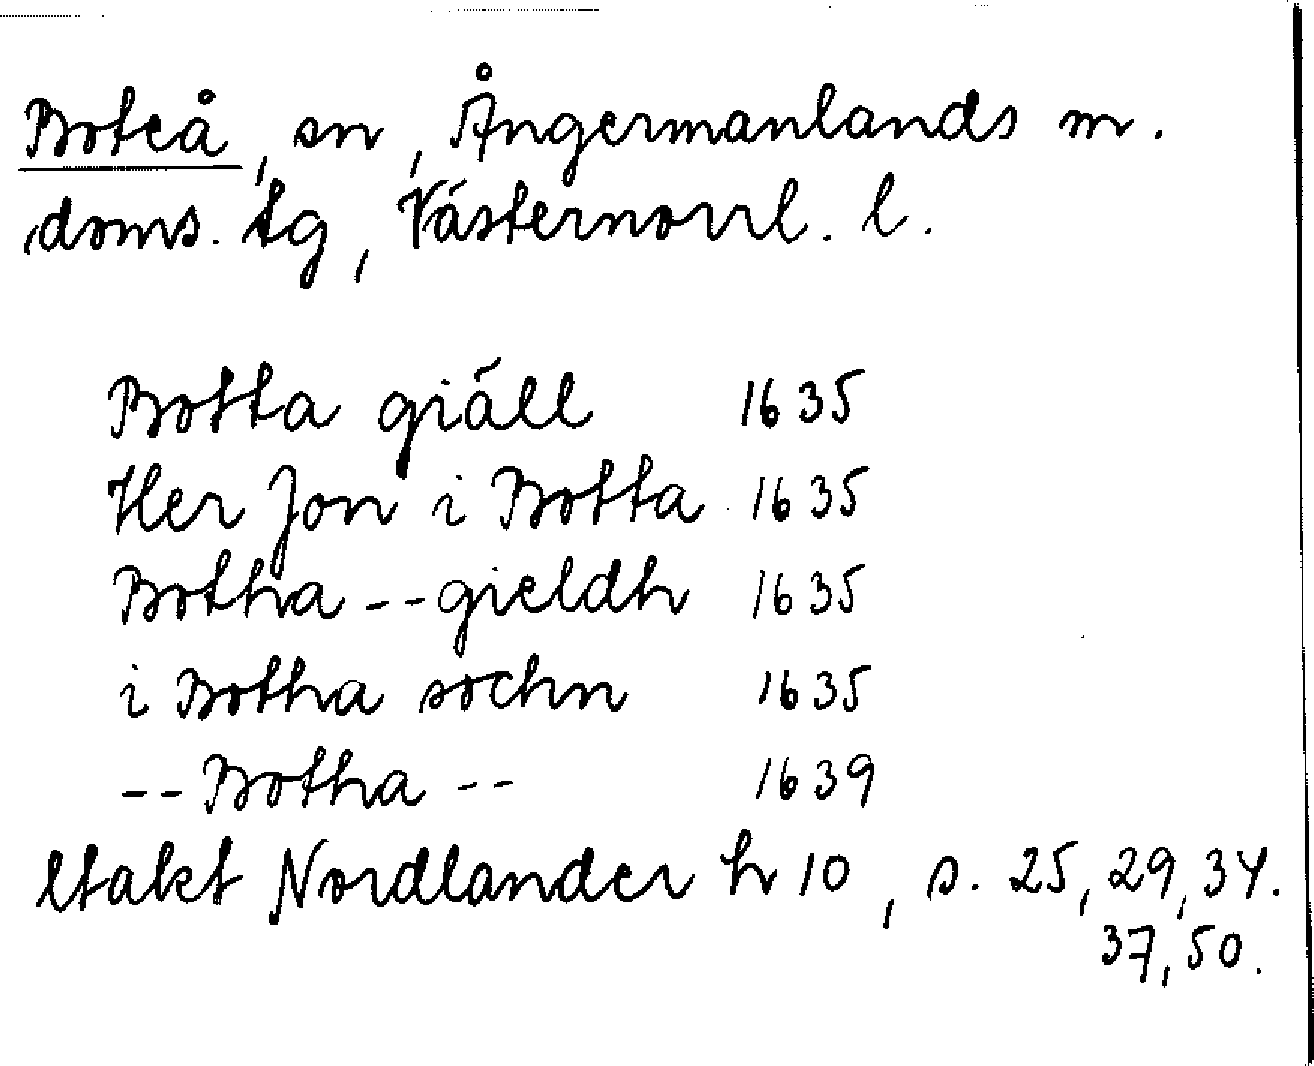 Boteå, sn, Ångermanlands m.
doms. tg, Västernorrl. l.
Botta giäll 1635
Her Jon i Botta 1635
Botha -- gieldh 1635
i Botha sochn 1635
-- Botha -- 1639
ltakt Nordlander h 10, s. 25, 29, 34.
37, 50.